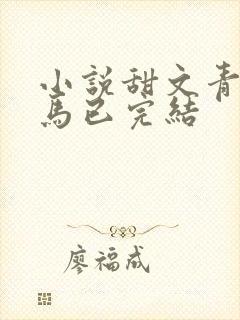 小説甜文青
馬已完結
廖福成